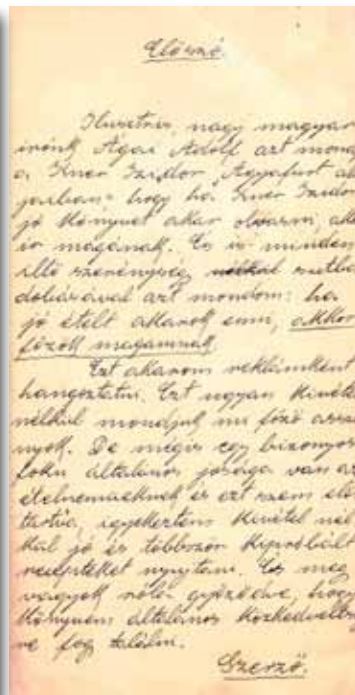 Előszó.
Ilusztris, nagy magyar
írónk Ágai Adolf azt mond
a Kner Izidor „Agyafúrt al
jaiban": hogy ha Kner Izidor
jó könyvet akar olvasni, akk
ír magának. És is minden
álló szerénység nélkül sutba
dobásával azt mondom: ha
jó ételt akarok enni, akkor
főzök magamnak
Ezt akarom reklámként
hangoztatni. Ezt ugyan kivétel
nélkül mondjuk mi főző assz
nyok. De mégis egy bizonyos
fokú általános jósága van az
ételnemüeknek és ezt szem elő
tartva, igyekeztem kivétel nél
kül jó és többször kipróbált
recepteket nyujtani. És meg
vagyok róla győződve, hogy
könyvem általános közkedvelts
re fog találni.
Szerző.